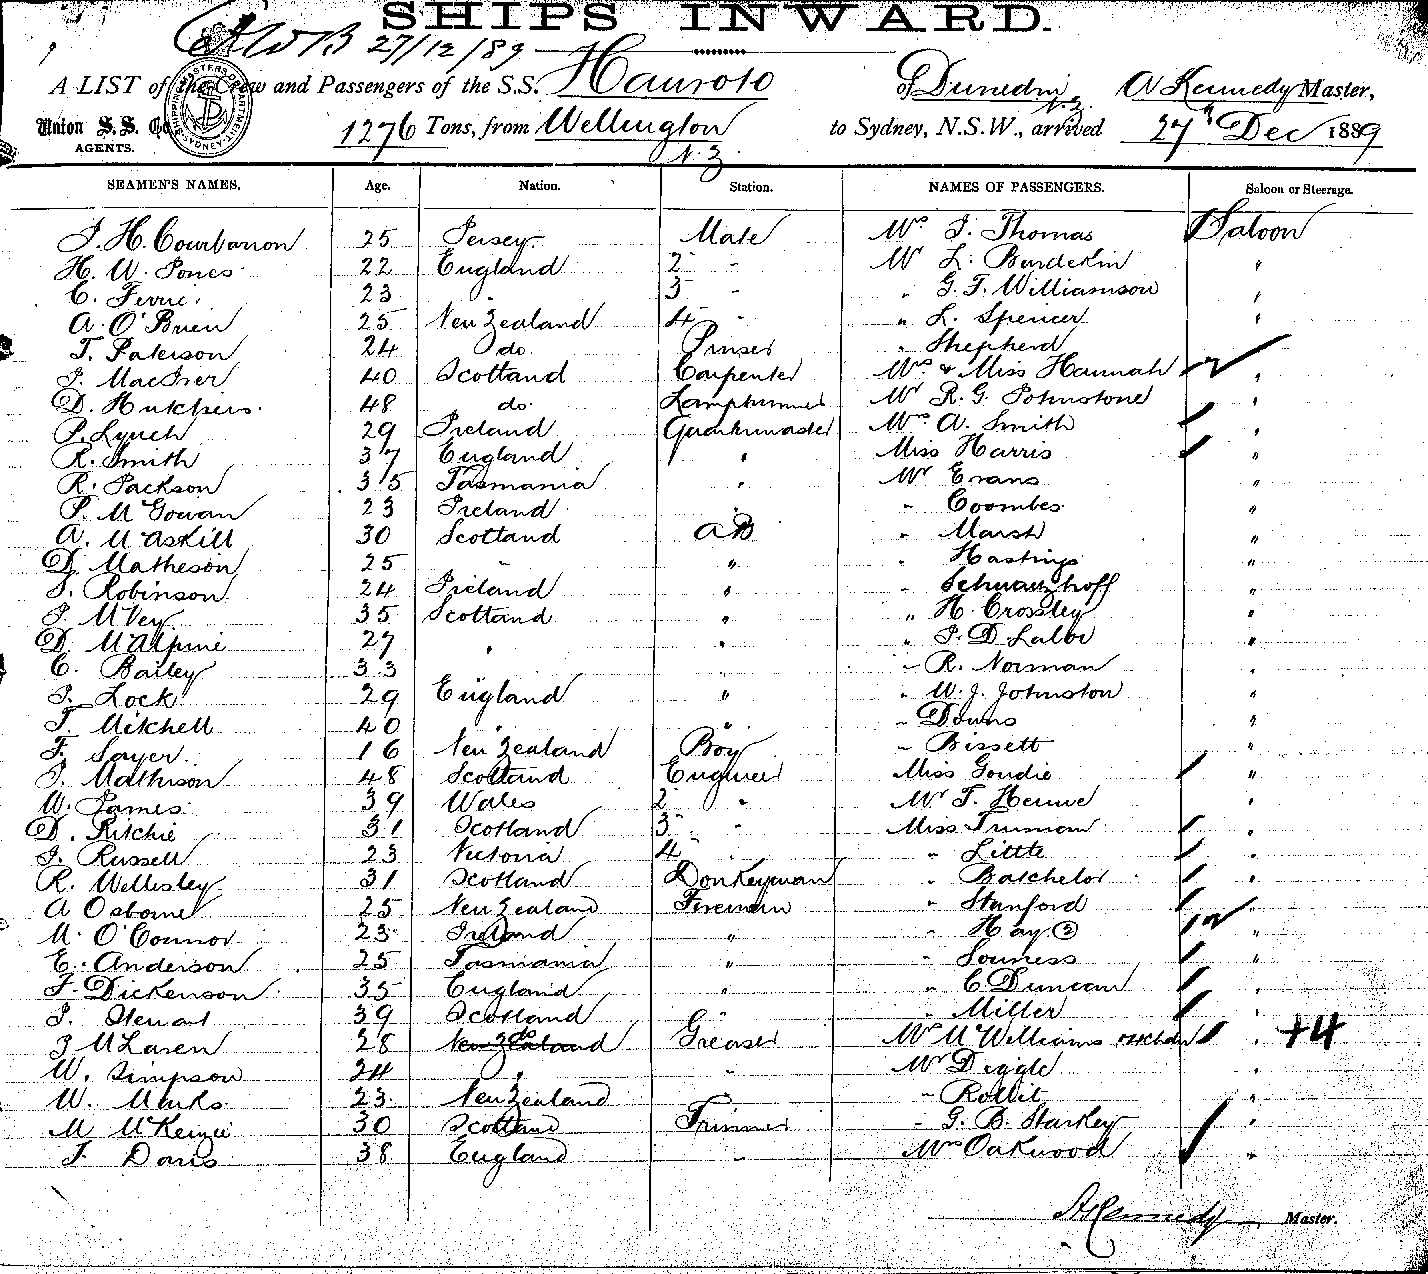 SHIPS INWARD.
27/12/89
A LIST of the Crew and Passengers of the S.S. Hauroto of Dunedin N.Z. A Kennedy Master,
Union S. S. Co AGENTS. 1276 Tons, from Wellington N.Z. to Sydney, N.S.W., arrived 27th Dec 1889
SEAMEN'S NAMES. Age. Nation. Station. NAMES OF PASSENGERS. Saloon or Steerage.
J. H. Courbarron 25 Jersey Mate Mrs J. Thomas Saloon
H. W. Jones 22 England 2 " Mr L. Burdekin "
C. Ferrie 23 " 3 " " G. F. Williamson "
A. O'Brien 25 New Zealand 4 " " L. Spencer "
T. Paterson 24 do Purser " Shepherd
J. MacIver 40 Scotland Carpenter Mrs & Miss Hannah "
D. Hutchins 48 do Lamptrimmer Mr R. G. Johnstone "
P. Lynch 29 Ireland Quartermaster Mrs A. Smith "
R. Smith 37 England " Miss Harris "
R. Jackson 35 Tasmania " Mr Evans "
P. McGowan 23 Ireland " " Coombes "
A. McAskill 30 Scotland AB " Marsh "
D. Matheson 25 " " " Hastings "
J. Robinson 24 Ireland " " Schwarzhoff "
J. McVey 35 Scotland " " H. Crossley "
D. McAlpine 27 " " " J. D. Lalor "
C. Bailey 33 " R. Norman "
J. Lock 29 England " " W. J. Johnston "
T. Mitchell 40 " " " Downs "
F. Sayer 16 New Zealand Boy " Bissett "
J. Mathison 48 Scotland Engineer Miss Goudie "
W. James 39 Wales 2 " Mr T. "
D. Ritchie 31 Scotland 3 " Miss Truman "
J. Russell 23 Victoria 4 " " Little "
R. Wellesley 31 Scotland Donkeyman " Batchelor "
A Osborne 25 New Zealand Fireman " Stanford "
M. O'Connor 23 Ireland " " Hay ② "
E. Anderson 25 Tasmania " " Souness "
F. Dickenson 35 England " " C Duncan "
J. Stewart 39 Scotland " " Miller "
J McLaren 28 New Zealand do Greaser Mrs McWilliams " +4
W. Simpson 24 " " Mr Diggle "
W. Marks 23 New Zealand " Rollit "
M McKenzie 30 Scotland Trimmer " G. B. Starkey "
F. Davis 38 England " Mrs Oakwood "
A Kennedy Master.